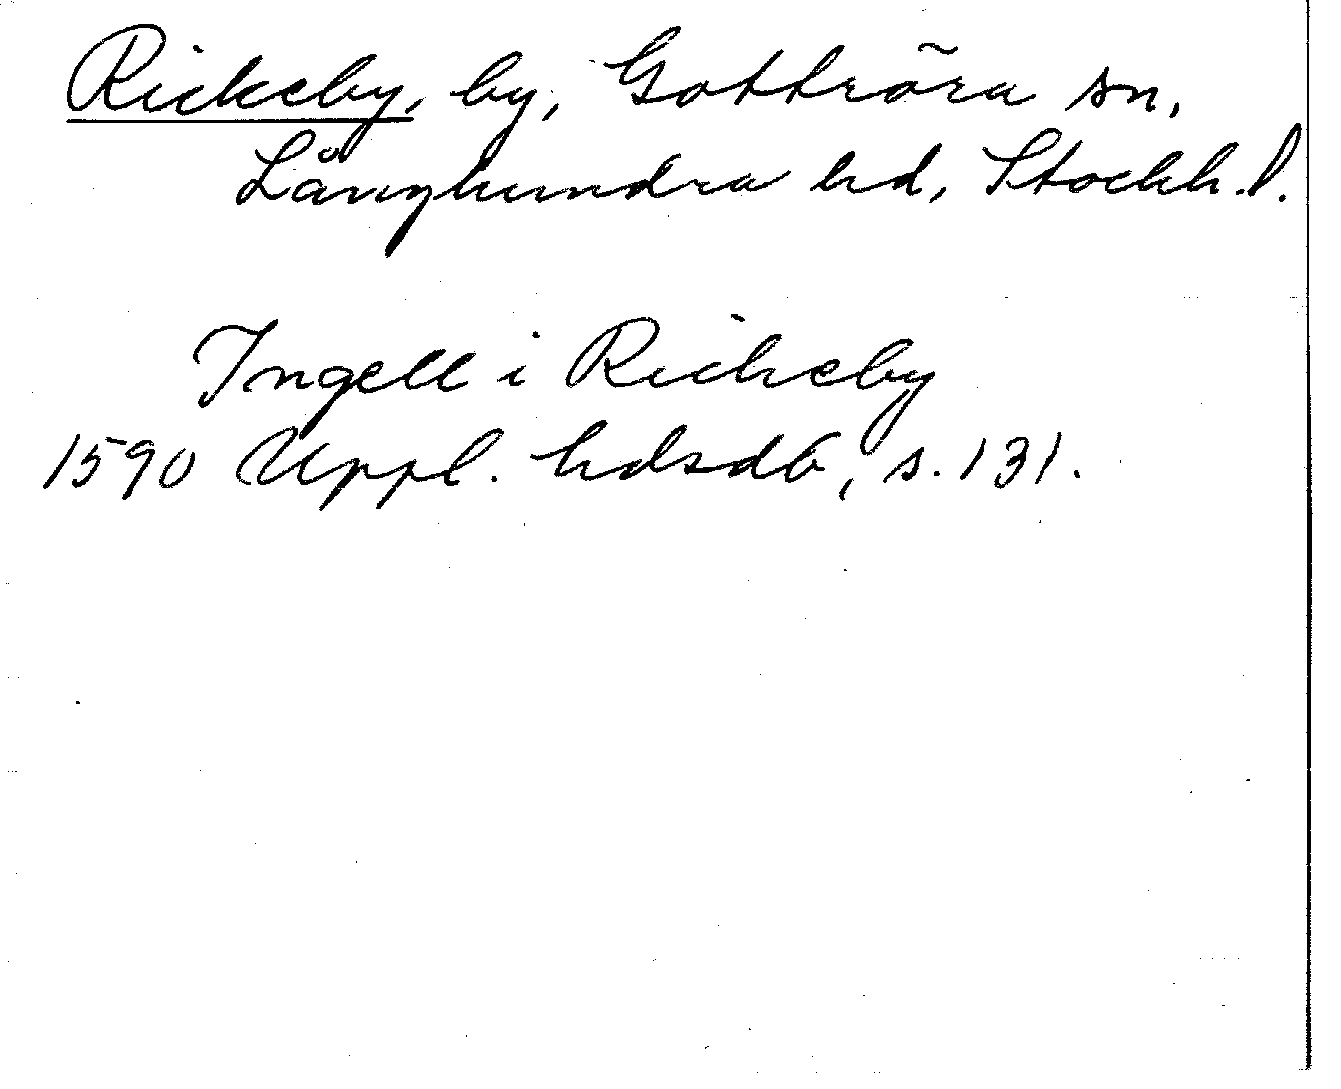 Rickeby, by, Gottröra sn,
Långhundra hd, Stockh. l.
Ingell i Rickeby
1590 Uppl. hdsdb, s. 131.